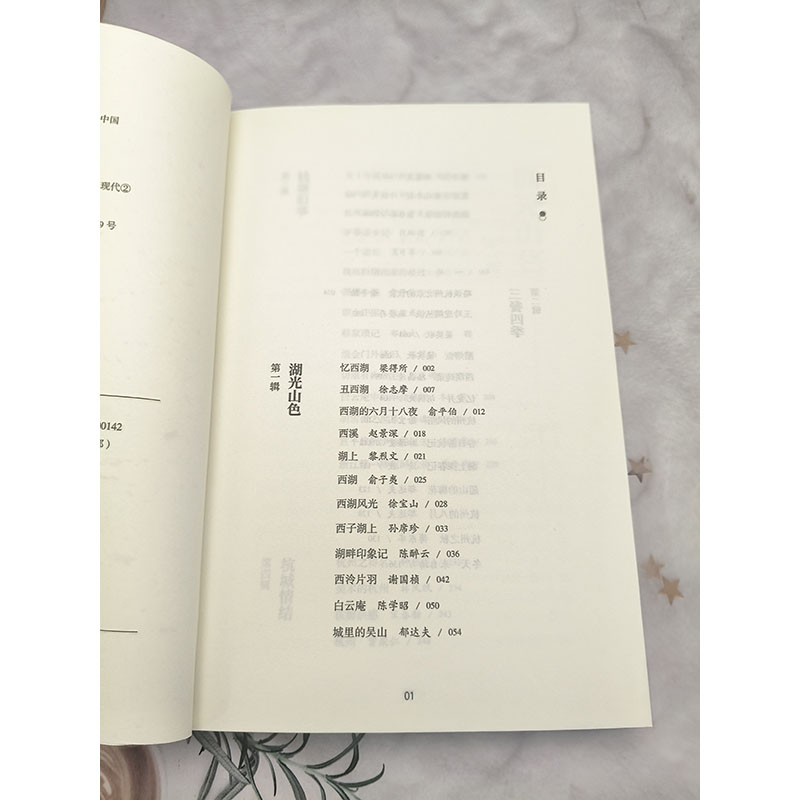 中国
现代②
9号
00142
部）
目录
第一辑
湖光山色
忆西湖 梁得所 / 002
丑西湖 徐志摩 / 007
西湖的六月十八夜 俞平伯 / 012
西溪 赵景深 / 018
湖上 黎烈文 / 021
西湖 俞子夷 / 025
西湖风光 徐宝山 / 028
西子湖上 孙席珍 / 033
湖畔印象记 陈醉云 / 036
西泠片羽 谢国桢 / 042
白云庵 陈学昭 / 050
城里的吴山 郁达夫 / 054
01